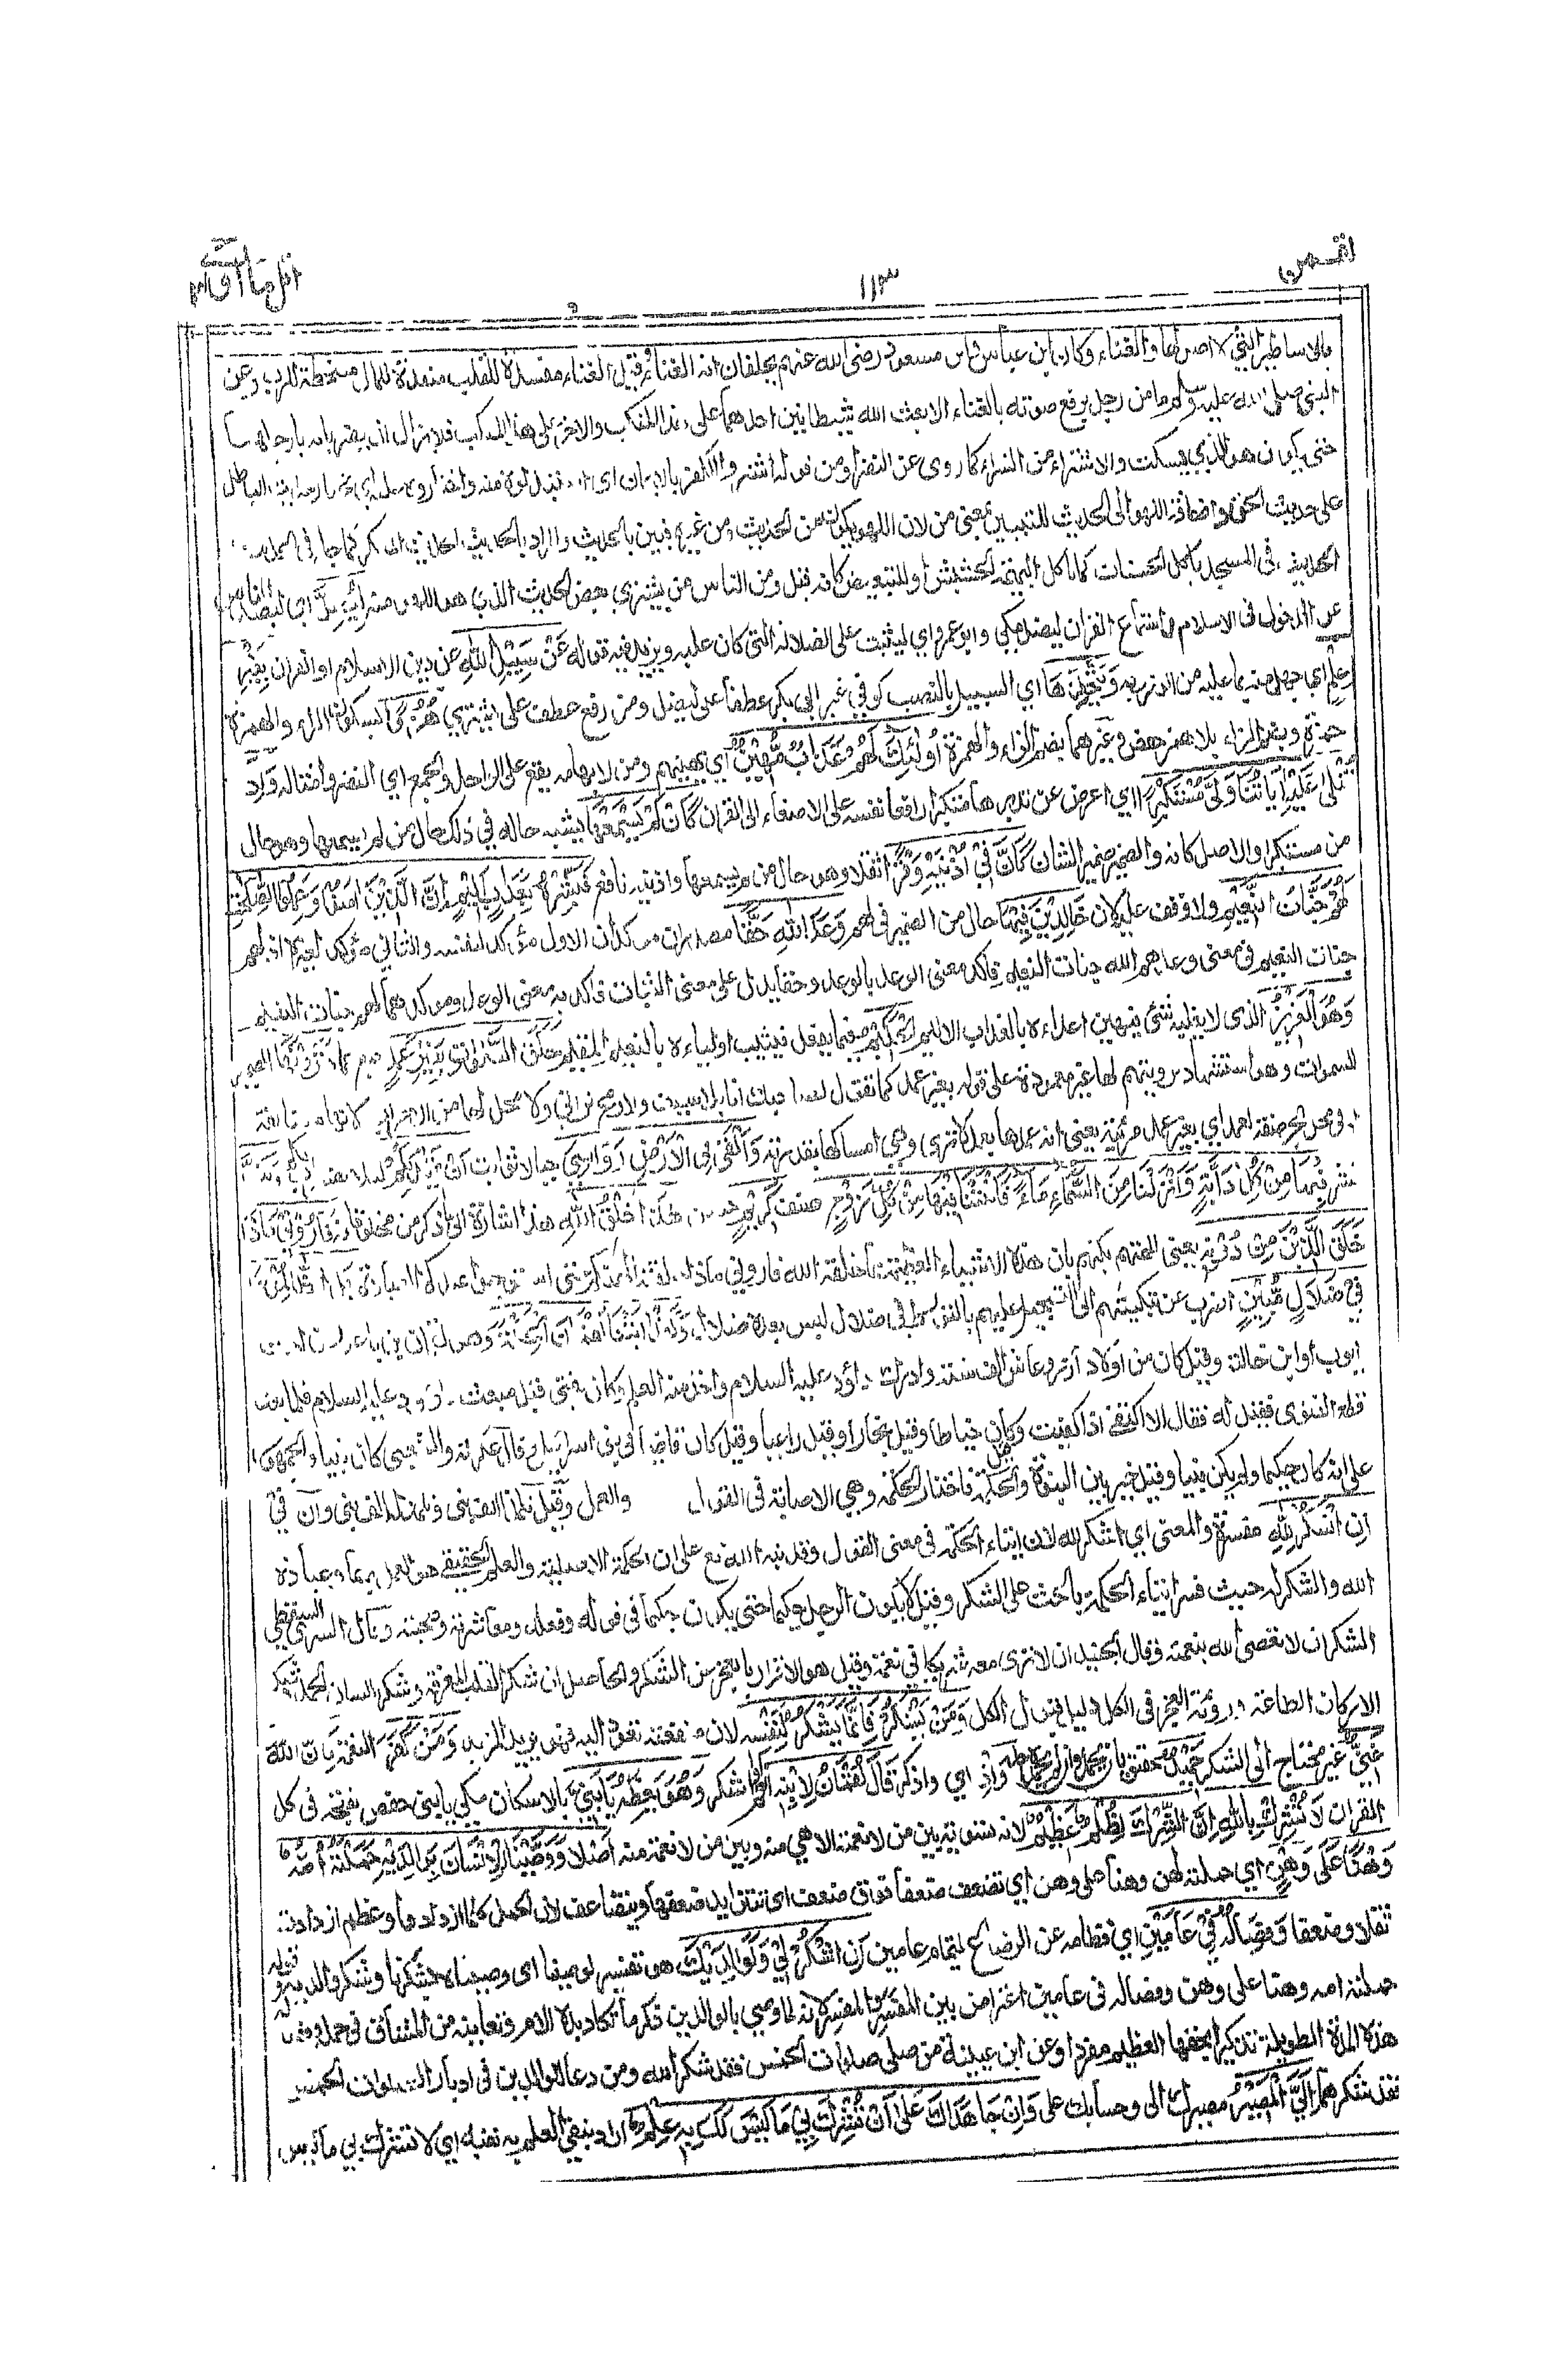 لقمن
١١٣
اتل ما اوحی ٢١
بالاساطير التي لا اصل لها والغناء وكان ابن عباس وابن مسعود رضى الله عنهم يحلفان انه الغناء وقيل الغناء مفسدة للقلب منفدة للمال مسخطة للرب وعن
النبى صلى الله عليه وسلم ما من رجل يرفع صوته بالغناء الا بعث الله شيطانين احدهما على هذا المنكب والاخر على هذا المنكب فلا يزالان يضربانه بارجلهما
حتى يكون هو الذي يسكت والاشتراء من الشراء كما روى عن النضر او من قوله اشتروا الكفر بالايمان اى استبدلوه منه واختاروه عليه اي يختار حديث الباطل
على حديث الحق واضافة اللهو الى الحديث للتبيين بمعنى من لان اللهو يكون من الحديث ومن غيره فبين بالحديث والمراد بالحديث الحديث المنكر كما جاء في الحديث
الحديث في المسجد ياكل الحسنات كما تاكل البهيمة الحشيش او للتبعيض كانه قيل ومن الناس من يشتري بعض الحديث الذي هو اللهو منه لِيُضِلَّ اى ليصد الناس
عن الدخول فى الاسلام واستماع القران ليضل مكي وابو عمرو اي ليثبت على الضلالة التي كان عليه ويزيد فيه قوله عَنْ سَبِيلِ اللّٰهِ عن دين الاسلام او القران بِغَيْرِ
عِلْمٍ اي جهلا منه بما عليه من الوزر به وَيَتَّخِذَهَا اي السبيل بالنصب كوفي غير ابي بكر عطفا على ليضل ومن رفع عطف على يشتري هُزُوًا بسكون الزاء والهمزة
حمزة وبضم الزاء بلا همز حفص وغيرهما بضم الزاء والهمزة اُولٰئِكَ لَهُمْ عَذَابٌ مُّهِينٌ اي يهينهم ومن لابهامه يقع على الواحد والجمع اي النضر وامثاله وَاِذَا
تُتْلٰى عَلَيْهِ اٰيَاتُنَا وَلّٰى مُسْتَكْبِرًا اي اعرض عن تدبرها متكبرا رافعا نفسه على الاصغاء الى القران كَاَنْ لَّمْ يَسْمَعْهَا يشبه حاله في ذلك حال من لم يسمعها وهو حال
من مستكبرا والاصل كانه والضمير ضمير الشان كَاَنَّ فِيْ اُذُنَيْهِ وَقْرًا ثقلا وهو حال من لم يسمعها واذنيه نافع فَبَشِّرْهُ بِعَذَابٍ اَلِيْمٍ اِنَّ الَّذِيْنَ اٰمَنُوْا وَعَمِلُوا الصّٰلِحٰتِ
لَهُمْ جَنّٰتُ النَّعِيْمِ ولا وقف عليه لان خَالِدِيْنَ فِيْهَا حال من الضمير فى لهم وَعْدَ اللّٰهِ حَقًّا مصدران مؤكدان الاول مؤكد لنفسه والثاني مؤكد لغيره اذ لهم
جنات النعيم فى معنى وعدهم الله جنات النعيم فاكد معنى الوعد بالوعد وحقا يدل على معنى الثبات فاكد به معنى الوعد ومؤكدهما لهم جنات النعيم
وَهُوَ الْعَزِيْزُ الذى لا يغلبه شئ فيهين اعداءه بالعذاب الاليم الْحَكِيْمُ فيما يفعل فيثيب اولياءه بالنعيم المقيم خَلَقَ السَّمٰوٰتِ بِغَيْرِ عَمَدٍ جمع عماد تَرَوْنَهَا الضمير
للسموات وهو استشهاد برؤيتهم لها غير معمودة على قوله بغير عمد كما تقول لصاحبك انا بلا سيف ولا رمح تراني ولا محل لها من الاعراب لانها مستانفة
او فى محل الجر صفة لعمد اي بغير عمد مرئية يعني انه عمدها بعمد لا ترى وهي امساكها بقدرته وَاَلْقٰى فِى الْاَرْضِ رَوَاسِيَ جبالا ثوابت اَنْ تَمِيْدَ بِكُمْ لئلا تضطرب بكم وَبَثَّ
نشر فِيْهَا مِنْ كُلِّ دَآبَّةٍ وَاَنْزَلْنَا مِنَ السَّمَآءِ مَآءً فَاَنْبَتْنَا فِيْهَا مِنْ كُلِّ زَوْجٍ صنف كَرِيْمٍ حسن هٰذَا خَلْقُ اللّٰهِ هذا اشارة الى ما ذكر من مخلوقاته فَاَرُوْنِيْ مَاذَا
خَلَقَ الَّذِيْنَ مِنْ دُوْنِهٖ يعنى الهتهم بكتهم بان هذه الاشياء العظيمة مما خلقه الله فاروني ماذا خلقته الهتكم حتى استوجبوا عندكم العبادة بَلِ الظّٰلِمُوْنَ
فِيْ ضَلَالٍ مُّبِيْنٍ اضرب عن تبكيتهم الى التسجيل عليهم بالتورط في ضلال ليس بعده ضلال وَلَقَدْ اٰتَيْنَا لُقْمٰنَ الْحِكْمَةَ وهو لقمان بن باعورا ابن اخت
ايوب او ابن خالته وقيل كان من اولاد آزر وعاش الف سنة وادرك داؤد عليه السلام واخذ منه العلم وكان يفتى قبل مبعث داود عليه السلام فلما بعث
قطع الفتوى فقيل له فقال الا اكتفي اذا كفيت وكان خياطا وقيل نجارا وقيل راعيا وقيل كان قاضيا فى بني اسرائيل وقال عكرمة والشعبى كان نبيا والجمهور
على انه كان حكيما ولم يكن نبيا وقيل خير بين النبوة والحكمة فاختار الحكمة وهي الاصابة فى القول والعمل وقيل تلمذ لالف نبى وتلمذ له الف نبى وان فى
اَنِ اشْكُرْ لِلّٰهِ مفسرة والمعنى اي اشكر لله لان ايتاء الحكمة في معنى القول وقد نبه الله تع على ان الحكمة الاصلية والعلم الحقيقي هو العمل بهما وعبادة
الله والشكر له حيث فسر ايتاء الحكمة بالحث على الشكر وقيل لا يكون الرجل حكيما حتى يكون حكيما فى قوله وفعله ومعاشرته وصحبته وقال السري السقطي
الشكر ان لا تعصى الله بنعمه وقال الجنيد ان لا ترى معه شريكا في نعمه وقيل هو الاقرار بالعجز عن الشكر والحاصل ان شكر القلب المعرفة وشكر اللسان الحمد وشكر
الاركان الطاعة ورؤية العجز فى الكل دليل قبول الكل وَمَنْ يَّشْكُرْ فَاِنَّمَا يَشْكُرُ لِنَفْسِهٖ لان منفعته تعود اليه فهو يزيد المزيد وَمَنْ كَفَرَ النعمة فَاِنَّ اللّٰهَ
غَنِيٌّ غير محتاج الى الشكر حَمِيْدٌ حقيق بان يحمد وان لم يحمده احد وَاِذْ اي واذكر اذ قَالَ لُقْمٰنُ لِابْنِهٖ انعم او اشكم وَهُوَ يَعِظُهٗ يٰبُنَيَّ بالاسكان مكي يابني حفص بفتحه فى كل
القران لَا تُشْرِكْ بِاللّٰهِ اِنَّ الشِّرْكَ لَظُلْمٌ عَظِيْمٌ لانه تسوية بين من لا نعمة الا هي منه وبين من لا نعمة منه اصلا وَوَصَّيْنَا الْاِنْسَانَ بِوَالِدَيْهِ حَمَلَتْهُ اُمُّهٗ
وَهْنًا عَلٰى وَهْنٍ اي حملته تهن وهنا على وهن اي تضعف ضعفا فوق ضعف اى تتزايد ضعفها ويتضاعف لان الحمل كلما ازداد او عظم ازدادت
ثقلا وضعفا وَفِصَالُهٗ فِيْ عَامَيْنِ اي فطامه عن الرضاع لتمام عامين اَنِ اشْكُرْ لِيْ وَلِوَالِدَيْكَ هو تفسير لوصينا اى وصيناه بشكرنا وشكر والديه وقوله
حملته امه وهنا على وهن وفصاله فى عامين اعتراض بين المفسر والمفسر لانه لما وصى بالوالدين ذكر ما تكابده الام وتعانيه من المشاق فى حمله وفصاله
هذه المدة الطويلة تذكيرا بحقها العظيم مفردا وعن ابن عيينة من صلى صلوات الخمس فقد شكر الله ومن دعا للوالدين فى ادبار الصلوات الخمس
فقد شكرهما اِلَيَّ الْمَصِيْرُ مصيرك الى وحسابك على وَاِنْ جَاهَدَاكَ عَلٰى اَنْ تُشْرِكَ بِيْ مَا لَيْسَ لَكَ بِهٖ عِلْمٌ اراد بنفي العلم به نفيه اي لا تشرك بي ما ليس